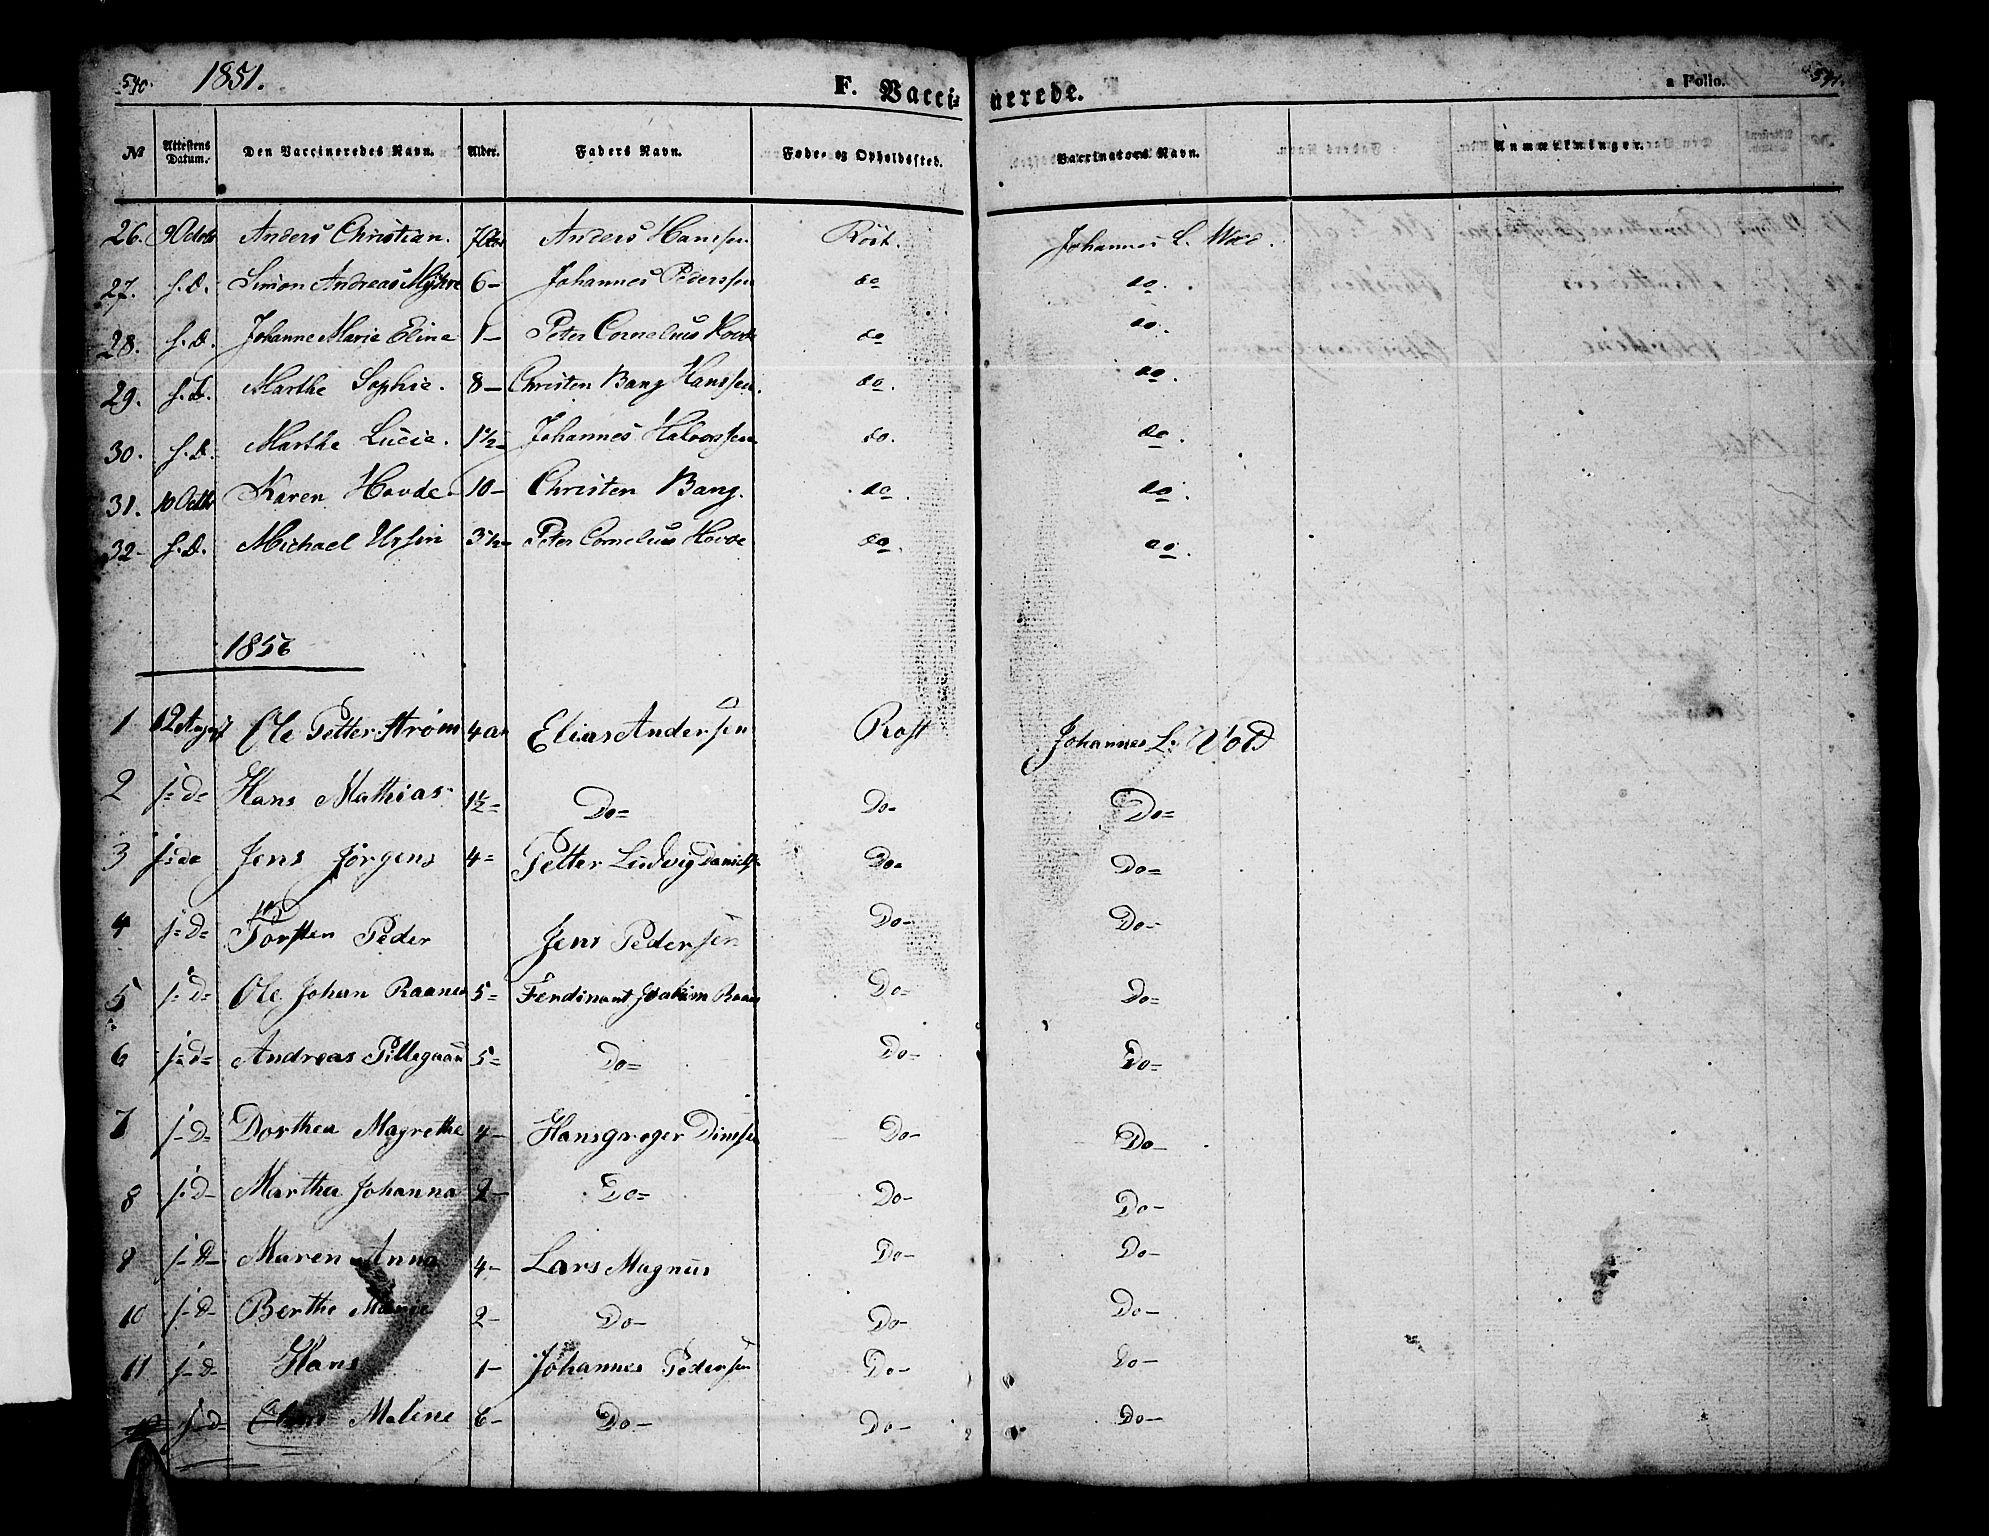 540. 1851. F. Vacci= nerede. a Folio. 541.
No Attestens Datum. Den Vaccineredes Navn. Alder. Faders Navn. Føde- og Opholdssted. Vaccinators Navn. Anmærkninger.
26. 9 Octob Anders Christian. 7 Aar Anders Hanssen Røst. Johannes L. Wold.
27. s. D. Simon Andreas 6- Johannes Pederssen do do.
28. s. D. Johanne Marie Eline 1- Peter Cornelius Hovde do do.
29. s. D. Marthe Sophie. 8- Christen Bang Hanssen. do. do.
30. s. D. Marthe Lucie. 1½- Johannes Halvorssen do. do.
31. 10 Octb Karen Hovde. 10- Christen Bang. do. do.
32- s. D. Michael Ursin 3½- Peter Cornelius Hovde do. do.
1856
1 12 August Ole Petter Strøm 4 aar Elias Andersen Røst Johannes L: Vold
2 s= d= Hans Mathias 1½= Do= Do= Do=
3 s: do Jens Jørgens 4= Petter Ludvig Daniels Do= Do=
4 s= d= Torsten Peder Jens Pedersen Do- Do-
5 s= d= Ole Johan Raanes 5= Ferdinant Joakim Raanes Do= Do=
6 s= d= Andreas 5= Do= Do= Do=
7 s- d= Dorthea Magrethe 4- Hans Do- Do-
8 s- d- Martha Johanna 2- Do= Do- Do-
9 s- d- Maren Anna 4- Lars Magnus Do- Do-
10 s- d- Berthe 2- Do- Do- Do-
11 s- d- Hans 1- Johannes Pedersen Do- Do-
12 s- d= Malene 6- Do- Do- Do-